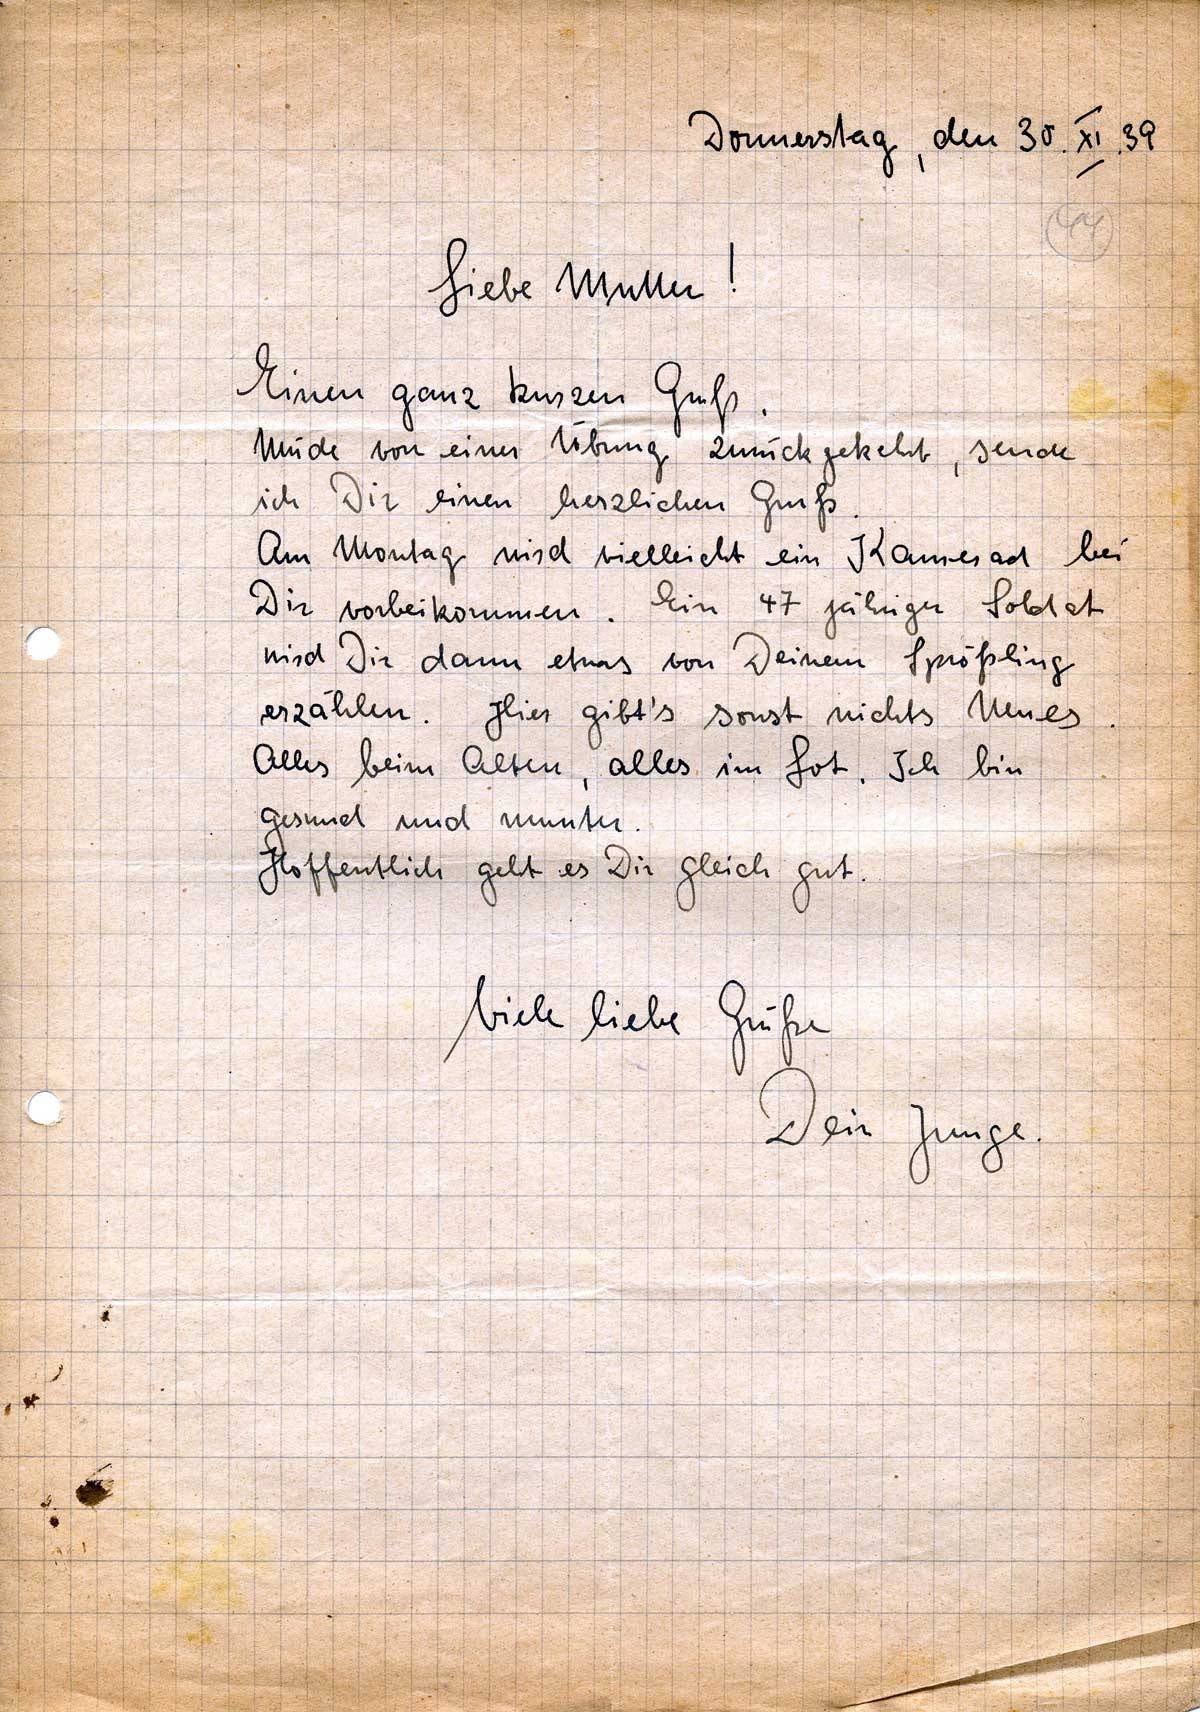 Donnerstag, den 30. XI. 39
44
Liebe Mutter!
Einen ganz kurzen Gruß.
Müde von einer Übung zurückgekehrt, sende
ich Dir einen herzlichen Gruß.
Am Montag wird vielleicht ein Kamerad bei
Dir vorbeikommen. Ein 47 jähriger Soldat
wird Dir dann etwas von Deinem Sprößling
erzählen. Hier gibt's sonst nichts Neues.
Alles beim Alten, alles im Lot. Ich bin
gesund und munter.
Hoffentlich geht es Dir gleich gut.
Viele liebe Grüße
Dein Junge.